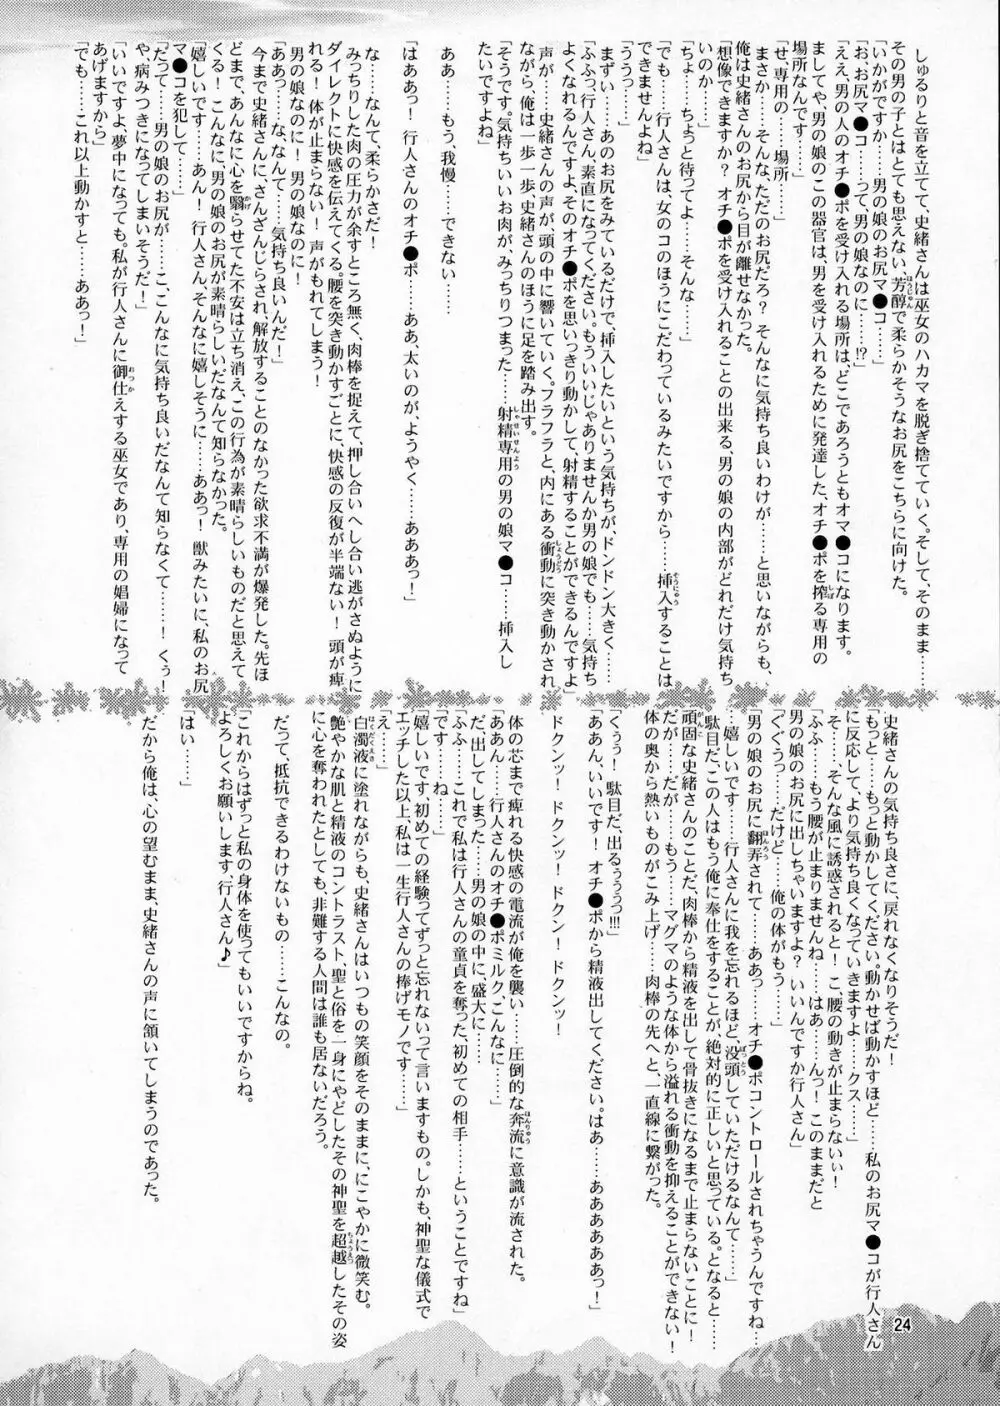 しゅるりと音を立てて、史緒さんは巫女のハカマを脱ぎ捨てていく。そして、そのまま……
その男の子とはとても思えない、芳醇で柔らかそうなお尻をこちらに向けた。
「いかがですか……男の娘のお尻マ●コ……」
「お、お尻マ●コ……って、男の娘なのに……!?」
「ええ、男の人のオチ●ポを受け入れる場所は、どこであろうともオマ●コになります。
ましてや、男の娘のこの器官は、男を受け入れるために発達した、オチ●ポを搾る専用の
場所なんです……」
「せ、専用の……場所……」
まさか……そんな、ただのお尻だろ？そんなに気持ち良いわけが……と思いながらも、
俺は史緒さんのお尻から目が離せなかった。
「想像できますか？オチ●ポを受け入れることの出来る、男の娘の内部がどれだけ気持ち
いいのか……」
「ちょ……ちょっと待ってよ……そんな……」
「でも……行人さんは、女のコのほうにこだわっているみたいですから……挿入することは
できませんよね」
「ううっ……」
まずい……あのお尻をみている。だけで、挿入したいという気持ちが、ドンドン大きく……
「ふふっ、行人さん、素直になってください。もういいじゃありませんか男の娘でも……気持ち
よくなれるんですよ、そのオチ●ポを思いっきり動かして、射精することができるんですよ」
声が……史緒さんの声が、頭の中に響いていく。フラフラと、内にある衝動に突き動かされ
ながら、俺は一歩一歩、史緒さんのほうに足を踏み出す。
「そうです。気持ちいいお肉が、みっちりつまった……射精専用の男の娘マ●コ……挿入し
たいですよね」
ああ……もう、我慢……できない……
「はああっ！行人さんのオチ●ポ……ああ、太いのが、ようやく……あああっ！」
な……なんて、柔らかさだ！
みっちりした肉の圧力が余すところ無く、肉棒を捉えて、押し合いへし合い逃がさぬように
ダイレクトに快感を伝えてくる。腰を突き動かすごとに、快感の反復が半端ない！頭が痺
れる！体が止まらない！声がもれてしまう！
男の娘なのに！男の娘なのに！
「ああっ……な、なんて……気持ち良いんだ！」
今まで史緒さんに、さんざんじらされ、解放することのなかった欲求不満が爆発した。先ほ
どまで、あんなに心を翳らせてた不安は立ち消え、この行為が素晴らしいものだと思えて
くる！こんなに、男の娘のお尻が素晴らしいだなんて知らなかった。
「嬉しいです……あん！行人さん、そんなに嬉しそうに……ああっ！獣みたいに、私のお尻
マ●コを犯して……」
「だって……男の娘のお尻が……こ、こんなに気持ち良いだなんて知らなくて……！くぅ！
や、病みつきになってしまいそうだ！」
「いいですよ、夢中になっても。私が行人さんに御仕えする巫女であり、専用の娼婦になって
あげますから」
「でも……これ以上動かすと……ああっ！」
史緒さんの気持ち良さに、戻れなくなりそうだ！
「もっと……もっと動かしてください。動かせば動かすほど……私のお尻マ●コが行人さん
に反応して、より気持ち良くなっていきますよ……クス……」
そ……、そんな風に誘惑されると！こ、腰の動きが止まらないぃ！
「ふふ……もう腰が止まりませんね……はあ……んっ！このままだと
男の娘のお尻に出しちゃいますよ？いいんですか行人さん」
「ぐぐうっ……だけど……俺の体がもう……」
「男の娘のお尻に翻弄されて……ああっ……オチ●ポコントロールされちゃうんですね…
…嬉しいです……行人さんに我を忘れるほど、没頭していただけるなんて……」
駄目だ、この人はもう俺に奉仕をすることが、絶対的に正しいと思っている。となると……
頑固な史緒さんのことだ、肉棒から精液を出して骨抜きになるまで止まらないことに！
だが……だが……もう……マグマのような体から溢れる衝動を抑えることができない！
体の奥から熱いものがこみ上げ……肉棒の先へと、一直線に繋がった。
「くぅぅ！駄目だ、出るぅぅうっ!!!」
「ああん、いいです！オチ●ポから精液出してください。はぁ……ああああああっ！」
ドクンッ！ドクンッ！ドクン！ドクンッ！
体の芯まで痺れる快感の電流が俺を襲い……圧倒的な奔流に意識が流された。
「ああん……行人さんのオチ●ポミルク、ごんなに……」
だ、出してしまった……男の娘の中に、盛大に……
「ふふ……これで私は行人さんの童貞を奪った、初めての相手……ということですね」
「です……ね……」
「嬉しいです、初めての経験ってずっと忘れないって言いますもの。しかも、神聖な儀式で
エッチした以上、私は一生行人さんの捧げモノです……」
「え……」
白濁液に塗れながらも、史緒さんはいつもの笑顔をそのままに、にこやかに微笑む。
艶やかな肌と精液のコントラスト、聖と俗を一身にやどしたその神聖を超越したその姿
に心を奪われたとしても、非難する人間は誰も居ないだろう。
だって、抵抗できるわけないもの……こんなの。
「これからはずっと私の身体を使ってもいいですからね。
よろしくお願いします、行人さん♪」
「はい……」
だから俺は、心の望むまま、史緒さんの声に頷いてしまうのであった。
24